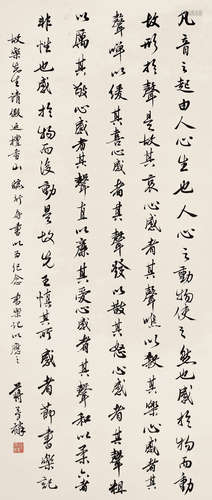 凡音之起由人心生也人心之動物使之然也感於物而動
故形於聲是故其哀心感者其聲噍以殺其樂心感者其
聲嘽以緩其喜心感者其聲發以散其怒心感者其聲粗
以厲其敬心感者其聲直以廉其愛心感者其聲和以柔六者
非性也感於物而後動是故先王慎其所感者節書樂記
樂先生請假返檀香山臨行書以為紀念書樂記以應之
蔣夢麟